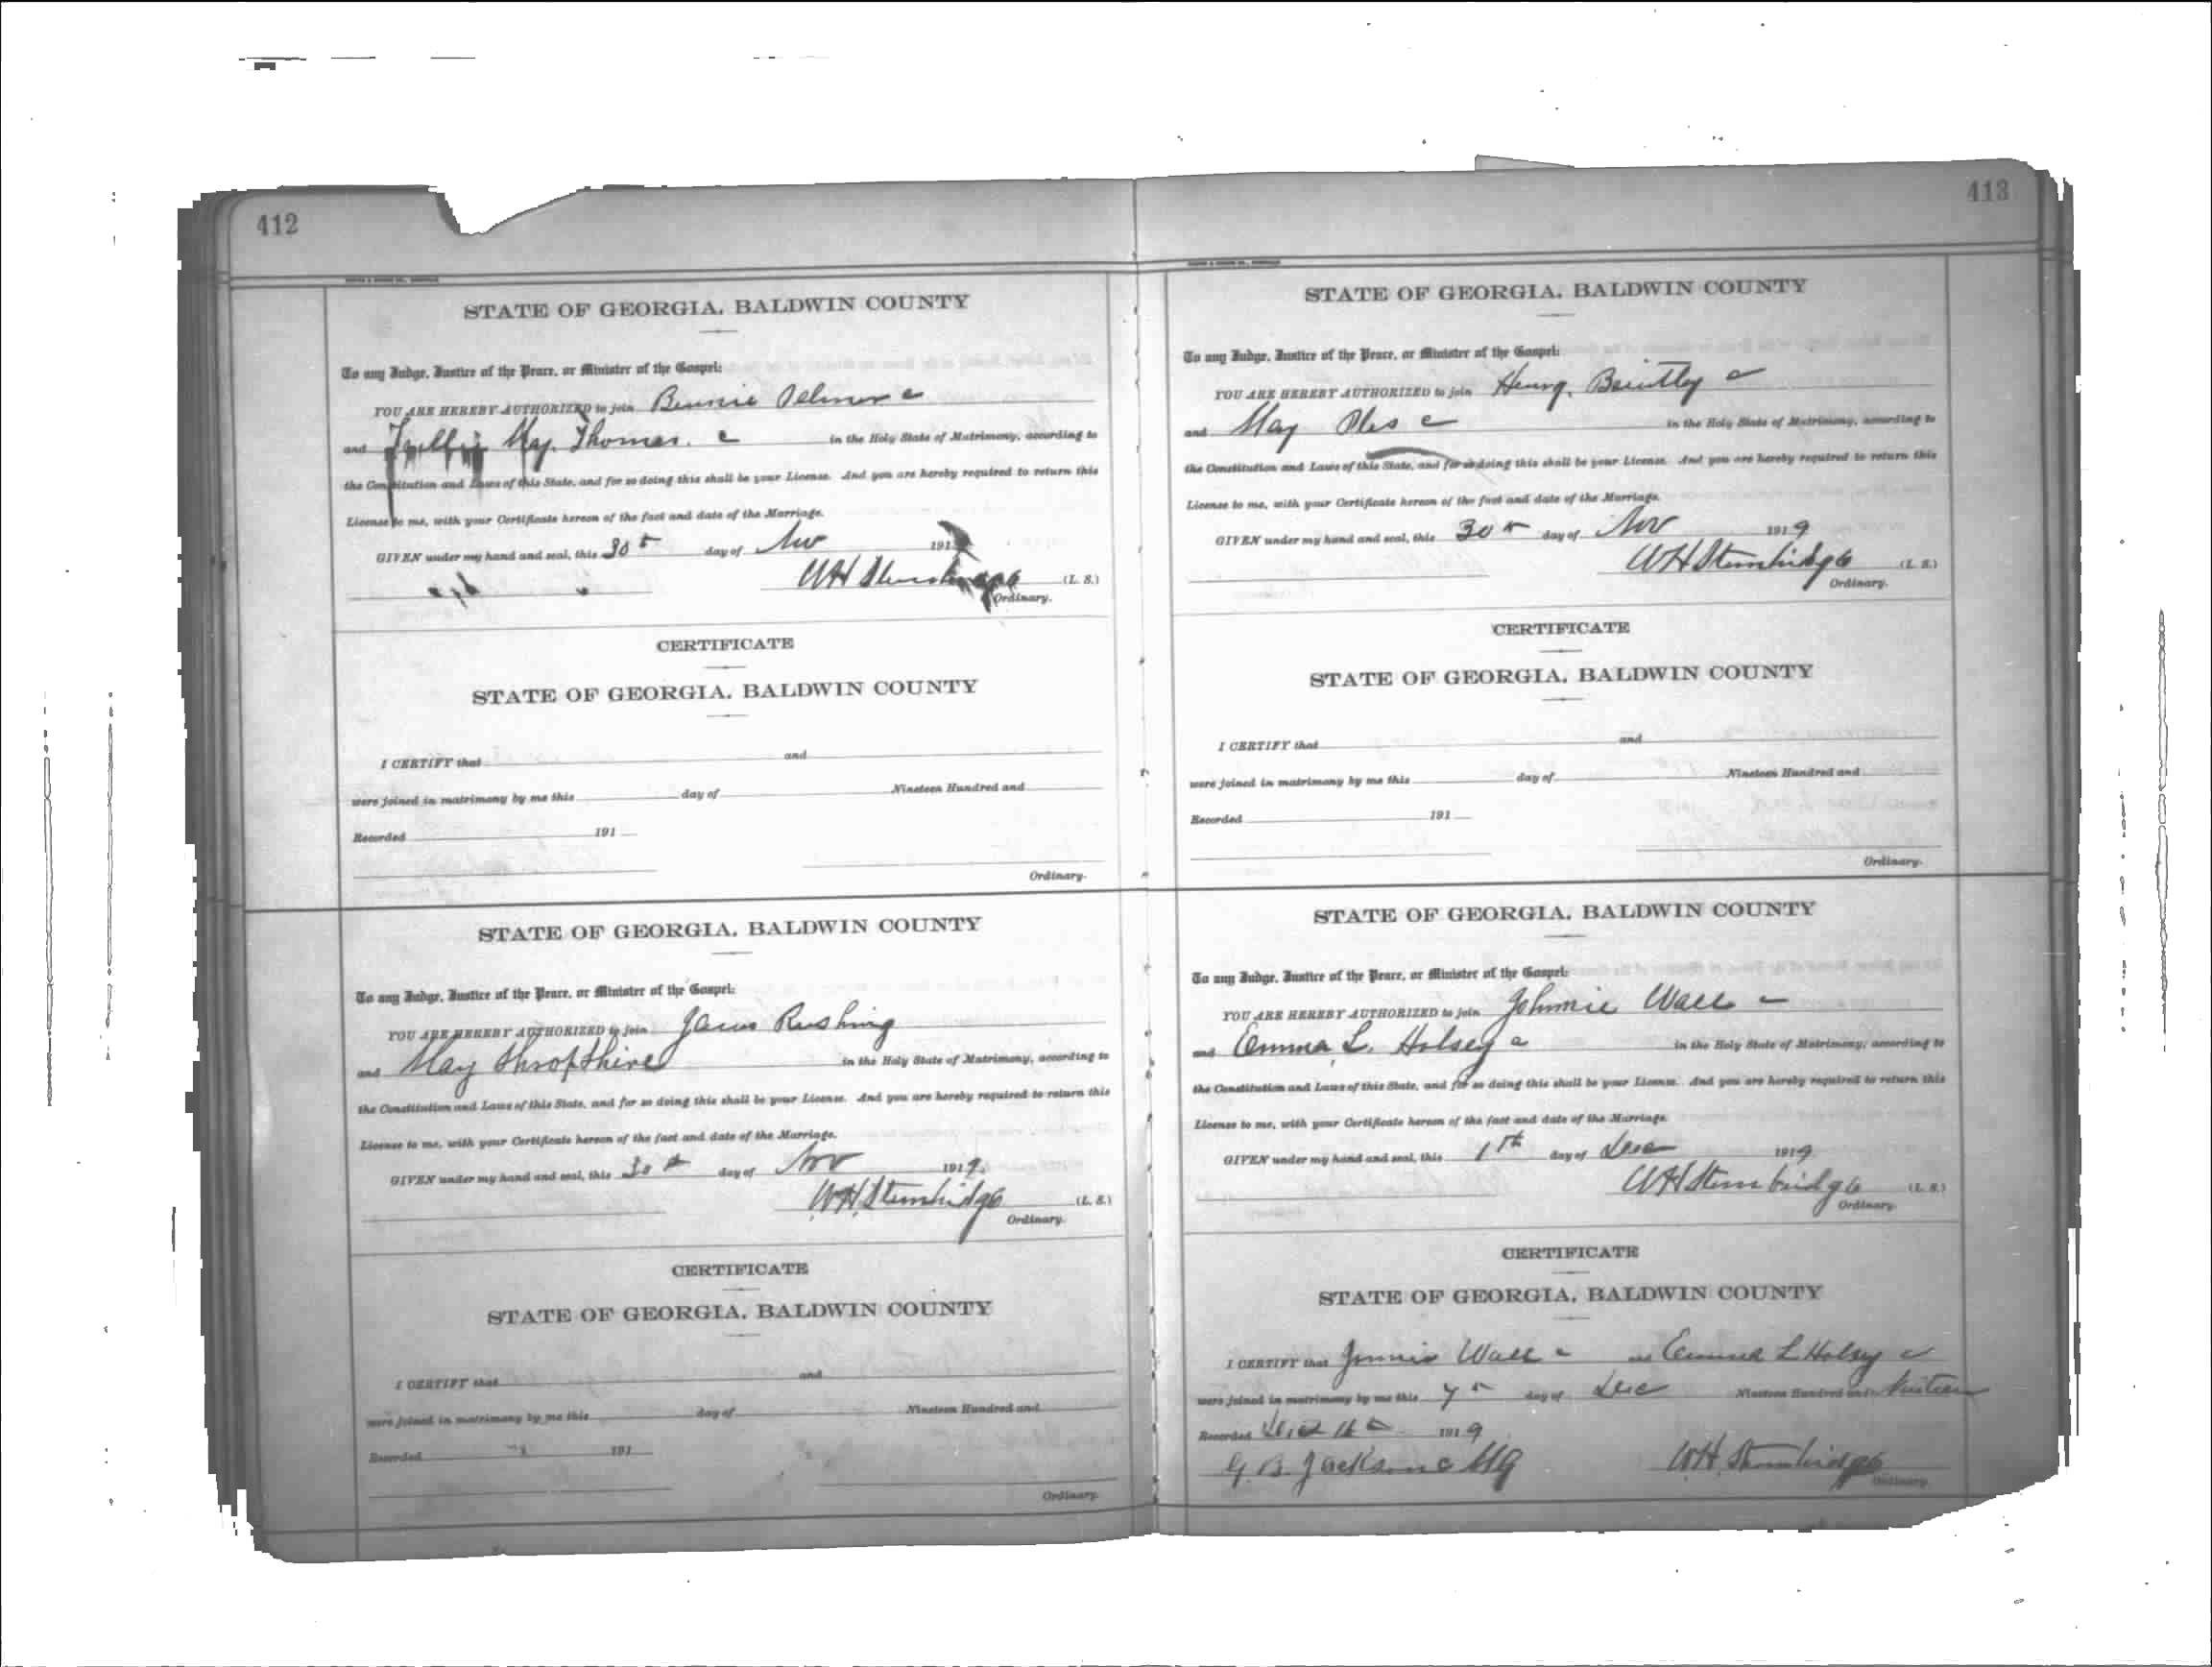 412
STATE OF GEORGIA, BALDWIN COUNTY
To any Judge, Justice of the Peace, or Minister of the Gospel:
YOU ARE HEREBY AUTHORIZED to join Bennie
and May Thomas. c in the Holy State of Matrimony, according to
the Constitution and Laws of this State, and for so doing this shall be your License. And you are hereby required to return this
License to me, with your Certificate hereon of the fact and date of the Marriage.
GIVEN under my hand and seal, this 30th day of Nov 191
WH Stembridge (L. S.)
Ordinary.
CERTIFICATE
STATE OF GEORGIA, BALDWIN COUNTY
I CERTIFY that and
were joined in matrimony by me this day of Nineteen Hundred and
Recorded 191
Ordinary.
STATE OF GEORGIA, BALDWIN COUNTY
To any Judge, Justice of the Peace, or Minister of the Gospel:
YOU ARE HEREBY AUTHORIZED to join James Rushing
and May Shropshire in the Holy State of Matrimony, according to
the Constitution and Laws of this State, and for so doing this shall be your License. And you are hereby required to return this
License to me, with your Certificate hereon of the fact and date of the Marriage.
GIVEN under my hand and seal, this 30th day of Nov 1919.
WH Stembridge (L. S.)
Ordinary.
CERTIFICATE
STATE OF GEORGIA, BALDWIN COUNTY
I CERTIFY that and
were joined in matrimony by me this day of Nineteen Hundred and
Recorded 191
Ordinary.
413
STATE OF GEORGIA, BALDWIN COUNTY
To any Judge, Justice of the Peace, or Minister of the Gospel:
YOU ARE HEREBY AUTHORIZED to join Henry c
and May c in the Holy State of Matrimony, according to
the Constitution and Laws of this State, and for so doing this shall be your License. And you are hereby required to return this
License to me, with your Certificate hereon of the fact and date of the Marriage.
GIVEN under my hand and seal, this 30th day of Nov 1919
WH Stembridge (L. S.)
Ordinary.
CERTIFICATE
STATE OF GEORGIA, BALDWIN COUNTY
I CERTIFY that and
were joined in matrimony by me this day of Nineteen Hundred and
Recorded 191
Ordinary.
STATE OF GEORGIA, BALDWIN COUNTY
To any Judge, Justice of the Peace, or Minister of the Gospel:
YOU ARE HEREBY AUTHORIZED to join Johnnie Wall c
and Emma L. Holsey c in the Holy State of Matrimony, according to
the Constitution and Laws of this State, and for so doing this shall be your License. And you are hereby required to return this
License to me, with your Certificate hereon of the fact and date of the Marriage.
GIVEN under my hand and seal, this 1th day of Dec 1919
WH Stembridge (L. S.)
Ordinary.
CERTIFICATE
STATE OF GEORGIA, BALDWIN COUNTY
I CERTIFY that Wall c and Emma L Holsey c
were joined in matrimony by me this 7th day of Dec Nineteen Hundred and
Recorded 1919
G. B. Jackson c MG WH Stembridge
Ordinary.